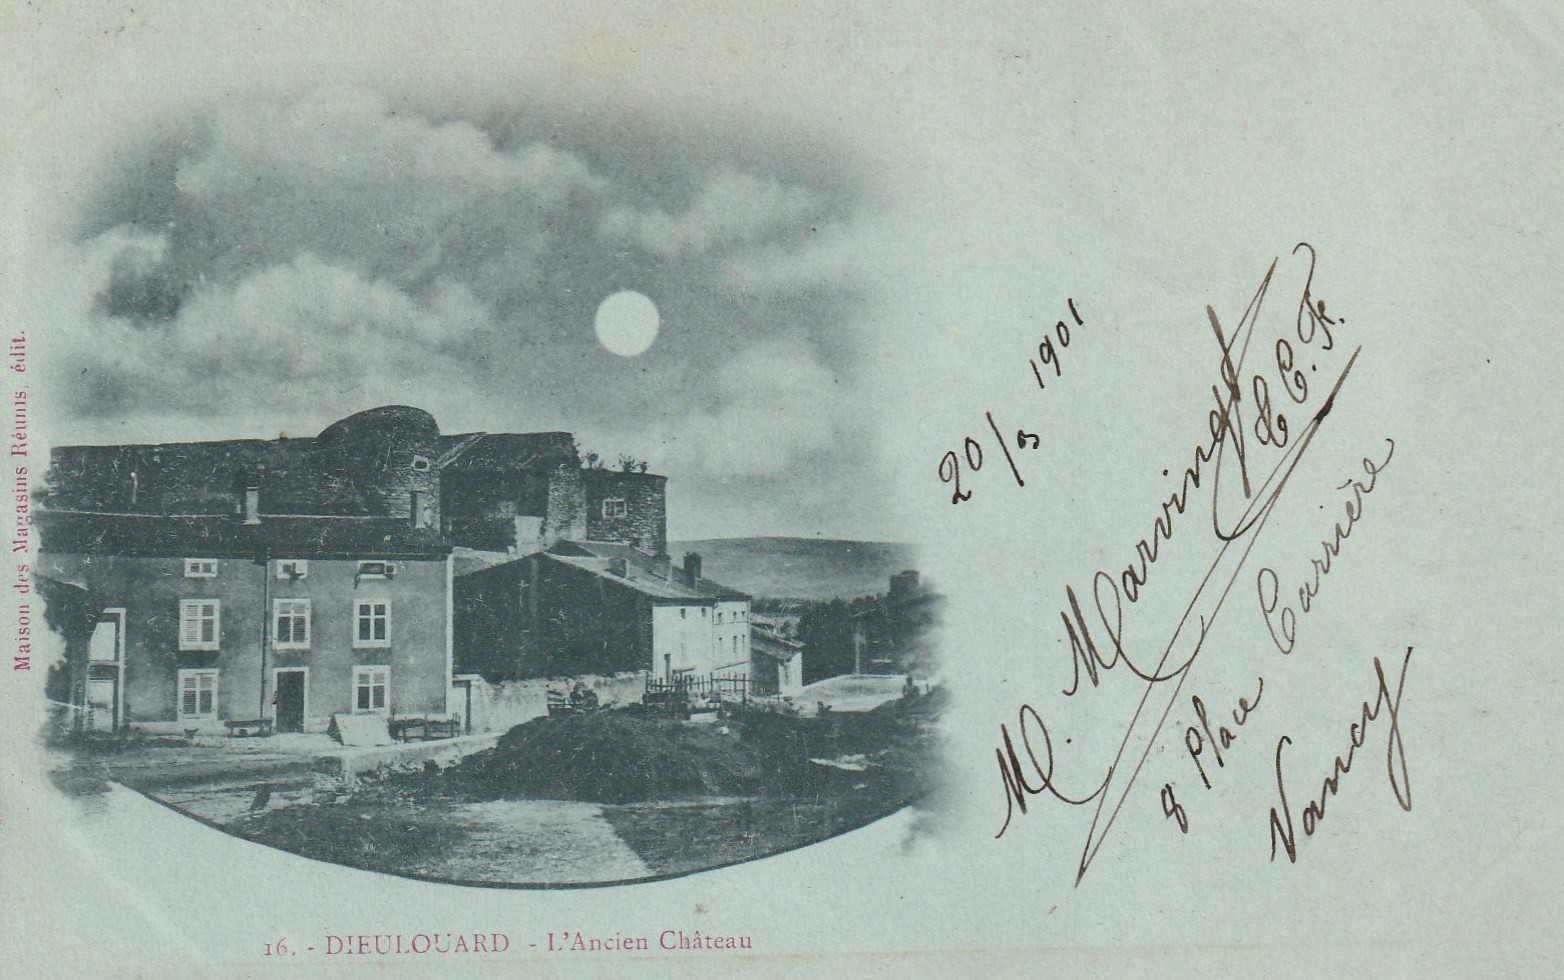 Maison des Magasins Réunis, édit.
20/3 1901
M. Marvingt
& C. F.
8 Place Carrière
Nancy
16. - DIEULOUARD - L'Ancien Château